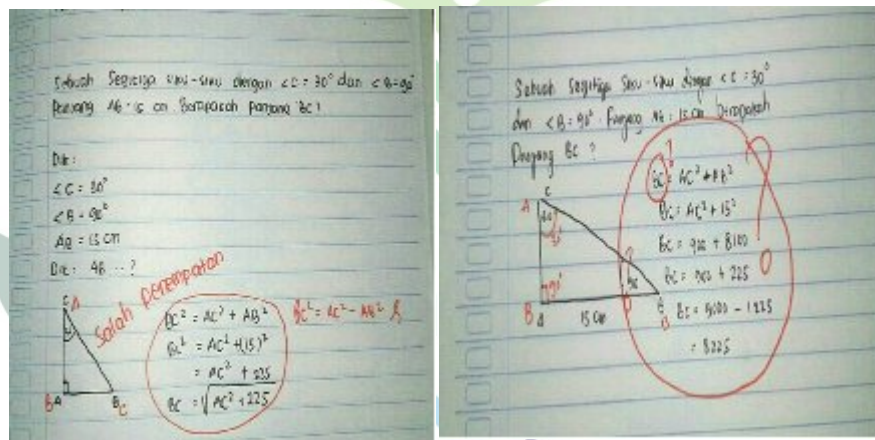 Sebuah Segitiga siku-siku dengan <C = 30° dan <B = 90°
Panjang AB = 15 cm Berapakah panjang BC !
Dik :
<C = 30°
<B = 90°
AB = 15 cm
Dit : AB ... ?
Salah penempatan
C A
B A
B C
BC² = AC² + AB²
BC² = AC² + (15)²
= AC² + 225
BC = √AC² + 225
BC² = AC² - AB²
Sebuah Segitiga Siku-siku dengan <C = 30°
dan <B = 90°. Panjang AB = 15 cm berapakah
Panjang BC ?
A C
90°
B A
15 cm
B
BC = AC² + AB²
BC = AC² + 15²
BC = 900 + 8100
BC = 900 + 225
BC = 9000 - 1225
= 8225